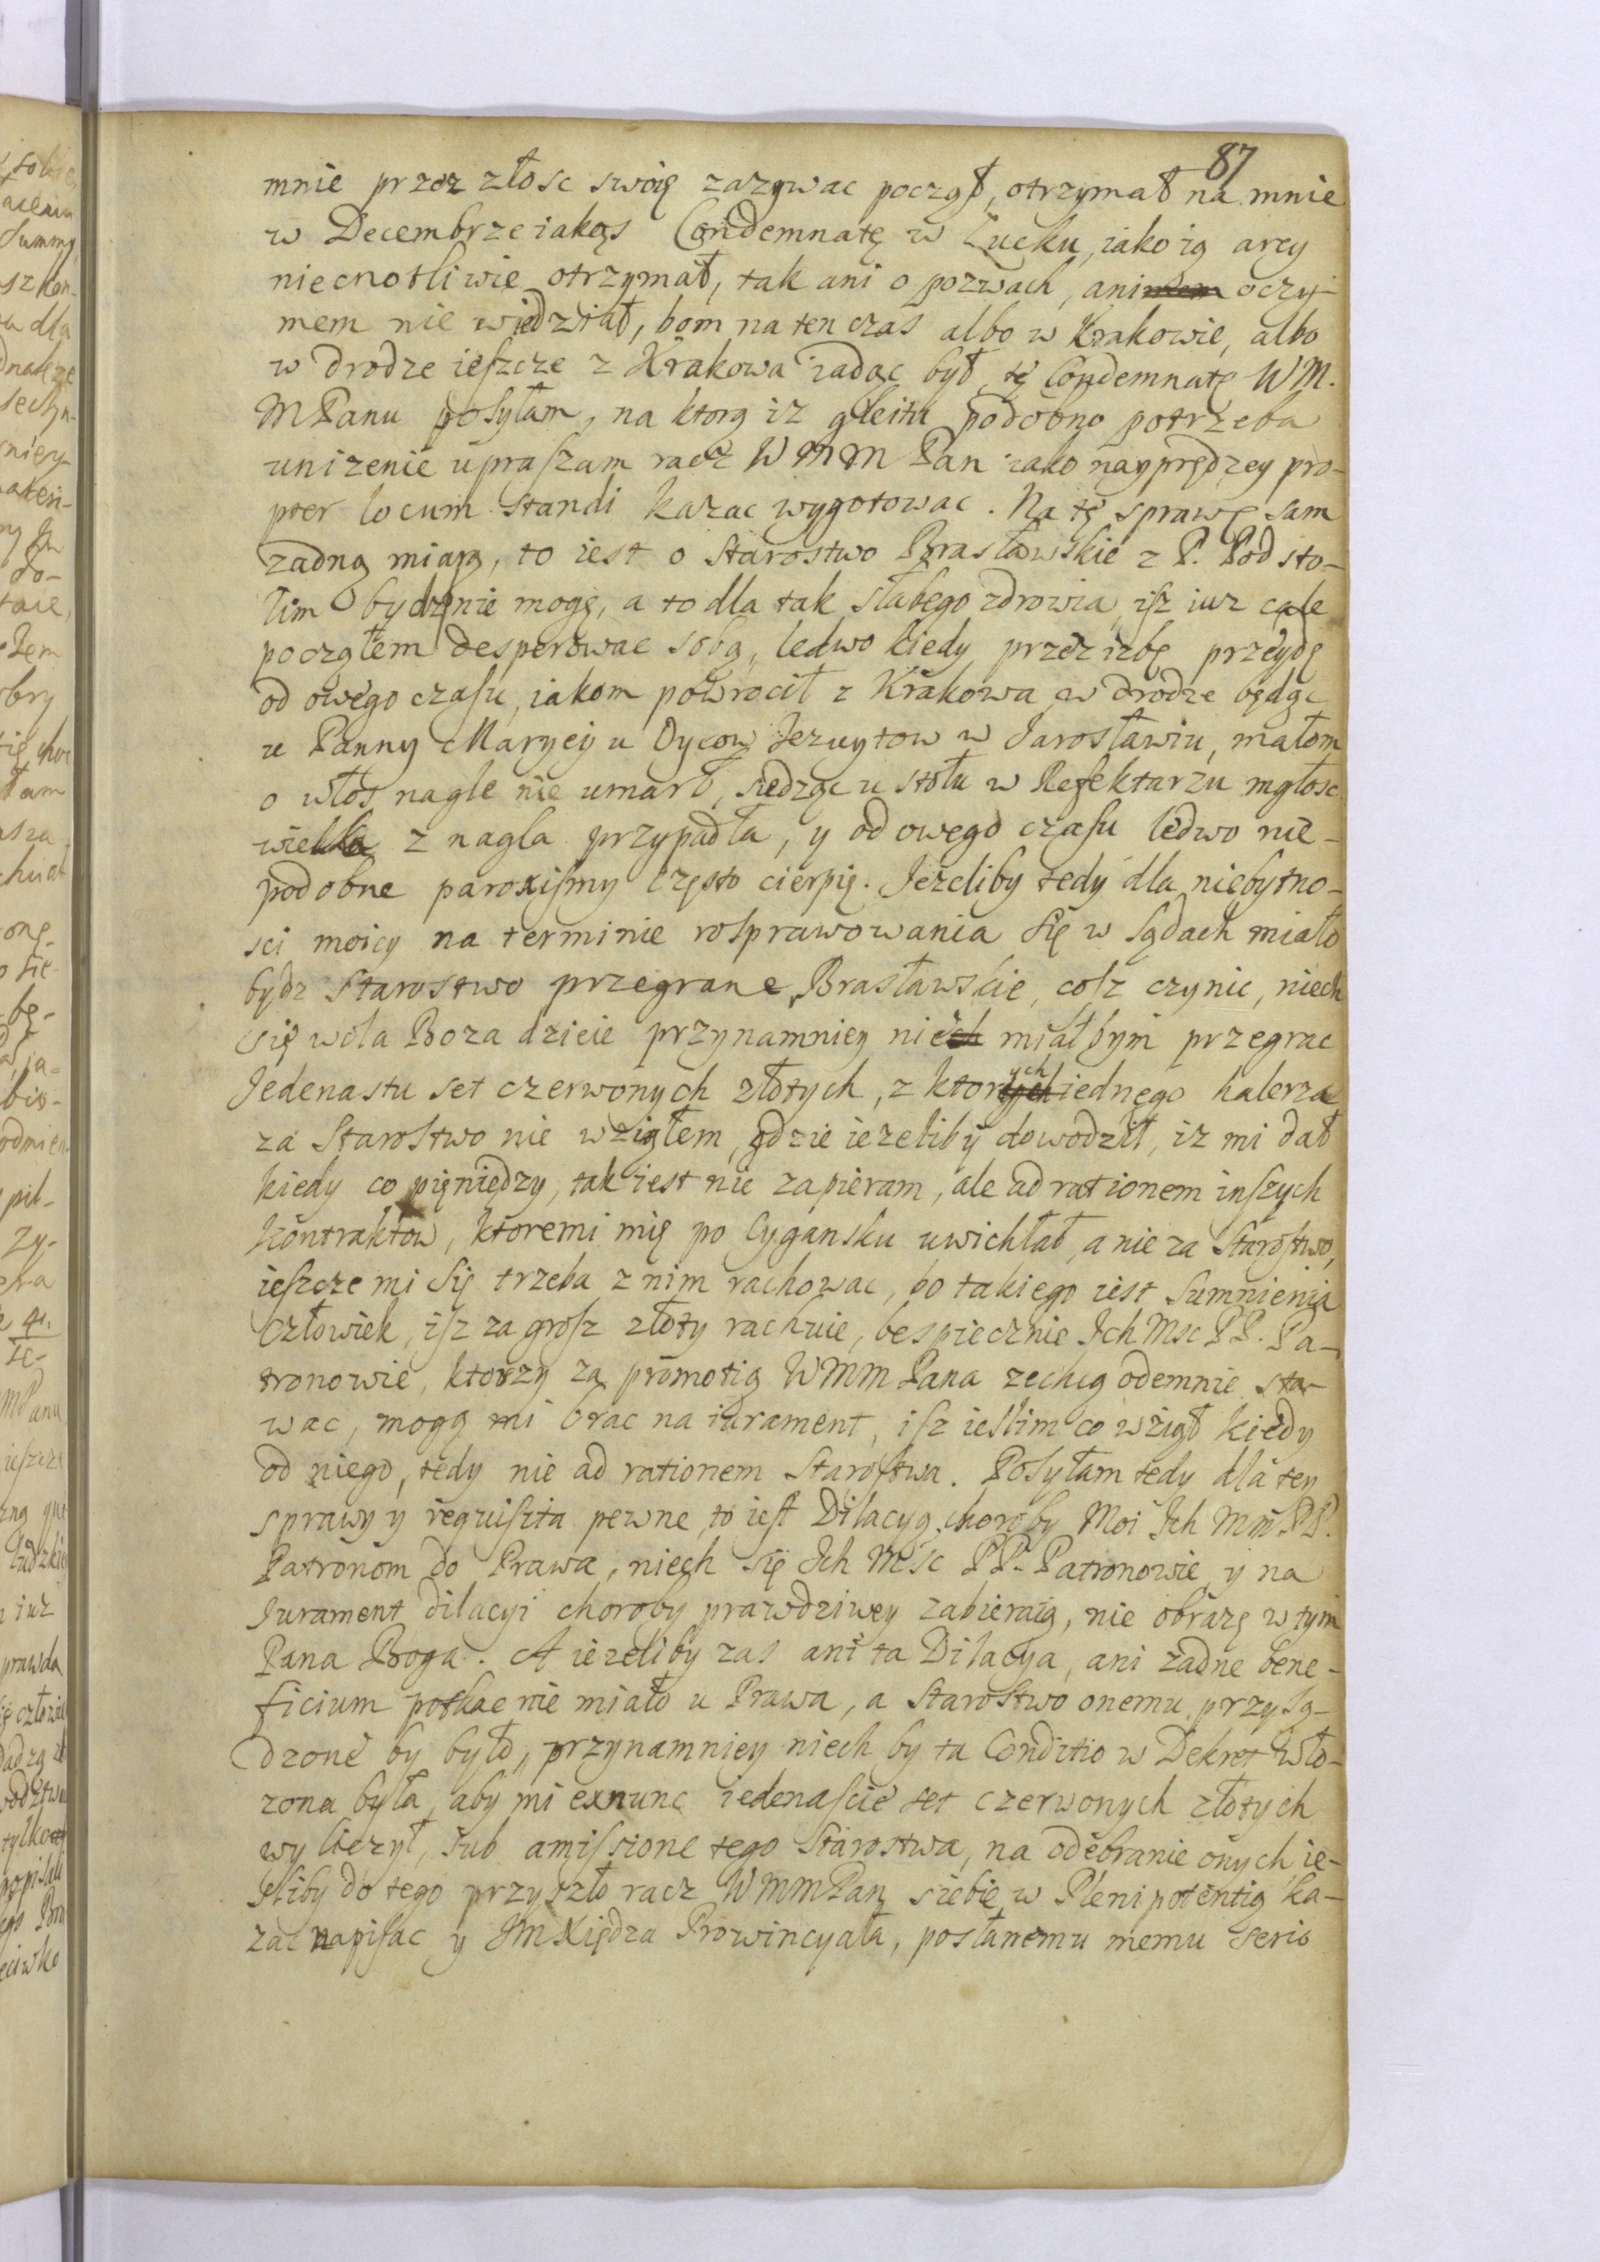 87
mnie przez złosc swoię zazywac począł, otrzymał na mnie
w Decembrze iakąs Condemnatę w Łucku, iako ią arcy
niecnotliwie otrzymał, tak ani o pozwach, ani oczy-
mem nie wiedział, bom na ten czas albo w Krakowie, albo
w drodze ieszcze z Krakowa iadąc był, tę Condemnatę WM.
MPanu posyłam, na ktorą iz gleitu podobno potrzeba
unizenie upraszam racz WMM Pan iako nayprędzey pro-
pter locum standi kazac wygotowac. Na tę sprawę sam
zadną miarą, to iest o Starostwo Brasławskie z P. Podsto-
lim bydz nie mogę, a to dla tak słabego zdrowia, isz iuz cale
począłem desperowac sobą, ledwo kiedy przez izbę przeydę
od owego czasu, iakom powrocił z Krakowa, w drodze będąc
u Panny Maryey u Oycow Jezuytow w Jarosławiu, małom
o włos nagle nie umarł, siedząc u stołu w Refektarzu mgłosc
wielka z nagla przypadła, y od owego czasu ledwo nie-
podobne paroxismy często cierpię. Jezeliby tedy dla niebytno-
sci moiey na terminie rosprawowania się w sądach miało
bydz Starostwo przegrane Brasławskie, cosz czynic, niech
się wola Boza dzieie przynamniey nie miałbym przegrac
Jedenastu set czerwonych złotych, z ktorych iednego halerza
za Starostwo nie wziąłem, gdzie iezeliby dowodził, iz mi dał
kiedy co pięniędzy, tak iest nie zapieram, ale ad rationem inszych
kontraktow, ktoremi mię po Cygansku uwichłał, a nie za Starostwo,
ieszcze mi się trzeba z nim rachowac, bo takiego iest sumnienia
człowiek, isz za grosz złoty rachuie, bespiecznie Ich Msc PP. Pa-
tronowie, ktorzy za promotią WMM Pana zechcą odemnie sta-
wac, mogą mi brac na iurament, isz ieslim co wziął kiedy
od niego, tedy nie ad rationem Starostwa. Posyłam tedy dla tey
sprawy y requisita pewne, to iest Dilacyą choroby Moi Ich Mm PP.
Patronom do Prawa, niech się Ich Msc PP. Patronowie y na
Jurament dilacyi choroby prawdziwey zabieraią, nie obrazę w tym
Pana Boga. A iezeliby zas ani ta Dilacya, ani zadne bene-
ficium potkac nie miało u Prawa, a Starostwo onemu przysą-
dzone by było, przynamniey niech by ta Conditio w Dekret wło-
zona była, aby mi exnunc iedenascie set czerwonych złotych
wyliczył, sub amissione tego Starostwa, na odebranie onych ie-
sliby do tego przyszło racz WMMPan siebie w Plenipotentią ka-
zac napisac y JM Xiędza Prowincyała, posłanemu memu serio